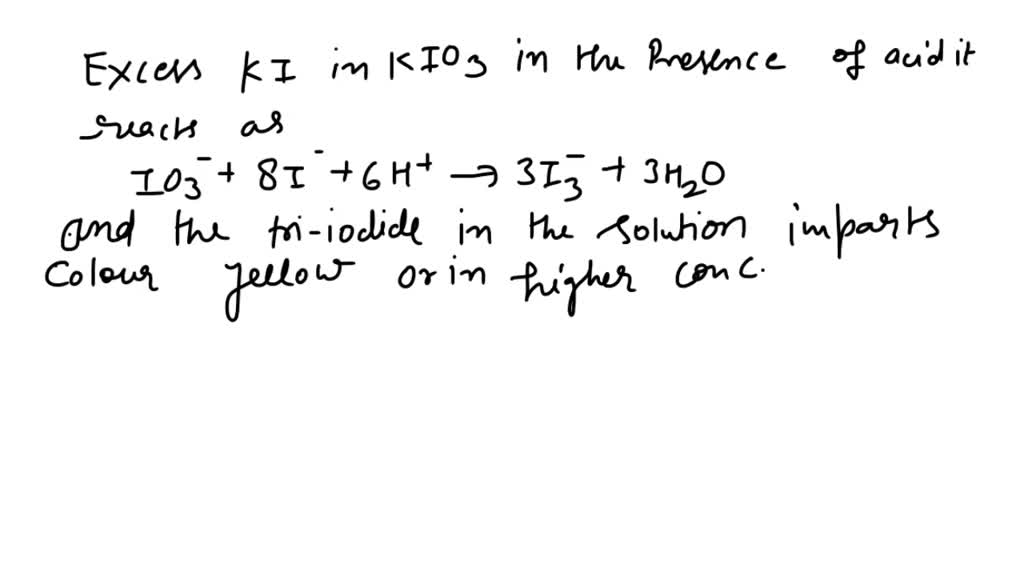 Excess KI in KIO₃ in the Presence of acid it
reacts as
IO₃⁻ + 8I⁻ + 6H⁺ → 3I₃⁻ + 3H₂O
and the tri-iodide in the solution imparts
Colour yellow or in higher conc.